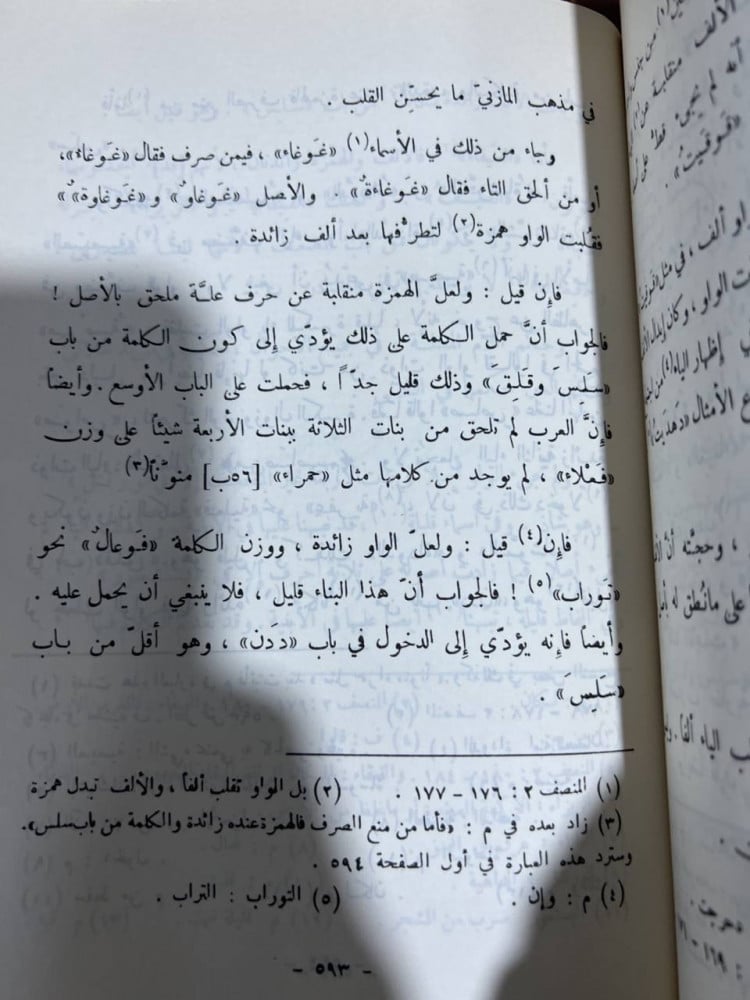 في مذهب المازنيّ ما يحسّن القلب .
وجاء من ذلك في الأسماء(١) «غَوغاء» ، فيمن صرف فقال «غَوغاءٌ»،
أو من ألحق التاء فقال «غَوغاءةٌ» . والأصل «غَوغاوٌ» و«غَوغاوةٌ»
فقُلبت الواو همزة(٢) لتطرُّفها بعد ألف زائدة .
فإن قيل : ولعلَّ الهمزة منقلبة عن حرف علّة ملحق بالأصل !
فالجواب أنَّ حمل الكلمة على ذلك يؤدّي إلى كون الكلمة من باب
«سَلِسَ وقَلِقَ» وذلك قليل جدّاً ، فحملت على الباب الأوسع . وأيضاً
فإنَّ العرب لم تلحق من بنات الثلاثة ببنات الأربعة شيئاً على وزن
«فَعْلاء» ، لم يوجد من كلامها مثل «حمراء» [٥٦ب] منوّناً(٣)
فإن(٤) قيل : ولعلّ الواو زائدة ، ووزن الكلمة «فَوعالٌ» نحو
«تَوراب»(٥) ! فالجواب أنّ هذا البناء قليل ، فلا ينبغي أن يحمل عليه .
وأيضاً فإنه يؤدّي إلى الدخول في باب «دَدَن» ، وهو أقلّ من باب
«سَلِسَ» .
(١) المنصف ٢ : ١٧٦ – ١٧٧ . (٢) بل الواو تقلب ألفاً ، والألف تبدل همزة
(٣) زاد بعده في م : «فأما من منع الصرف فالهمزة عنده زائدة والكلمة من باب سلس».
وسترد هذه العبارة في أول الصفحة ٥٩٤ .
(٤) م : وإن . (٥) التوراب : التراب .
- ٥٩٣ -